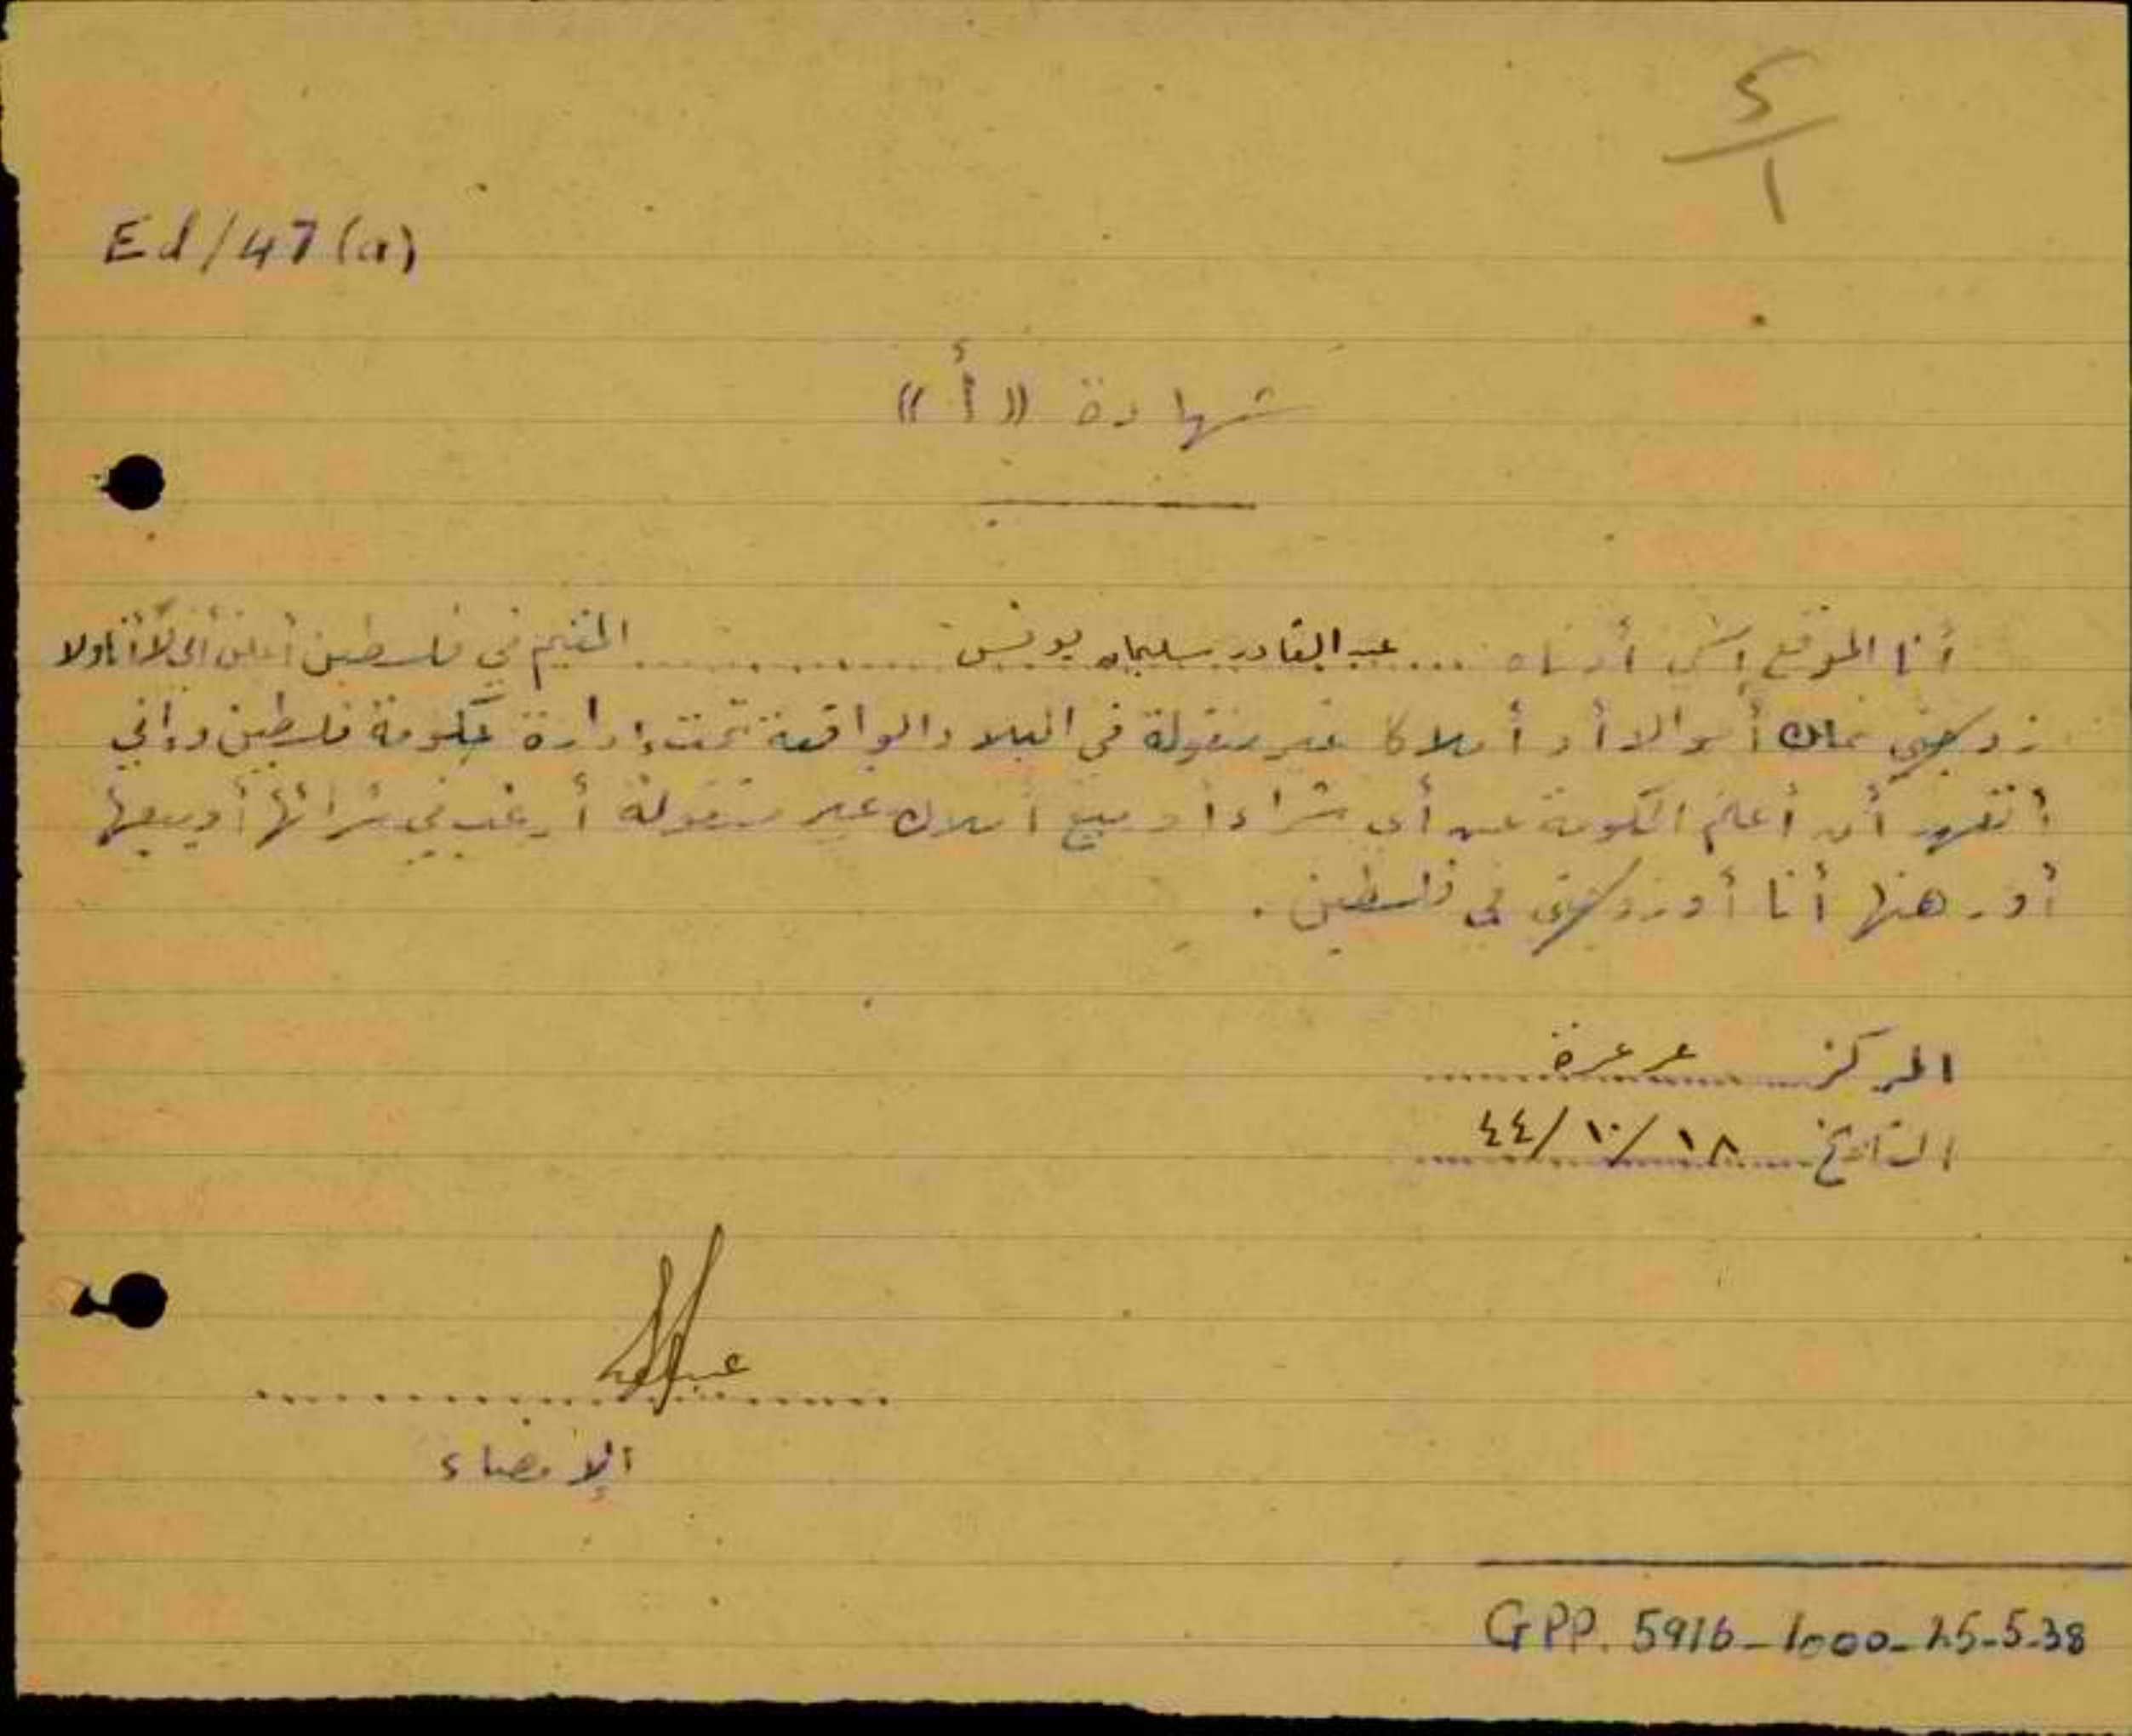 ٤
١
Ed/47(a)
شهادة «أ»
أنا الموقع اسمي أدناه ... عبد القادر سليمان يونس ............ المقيم في فلسطين أعلن أني لا أنا ولا
زوجتي نملك أموالا أو أملاكا غير منقولة في البلاد الواقعة تحت إدارة حكومة فلسطين وإني
أتعهد أن أعلم الحكومة عن أي شراء أو بيع أملاك غير منقولة أرغب في شرائها أو بيعها
أو رهنها أنا أو زوجتي في فلسطين .
المركز عرعرة
التاريخ ١٨/١٠/٤٤
الإمضاء
GPP. 5916-1000-25-5-38